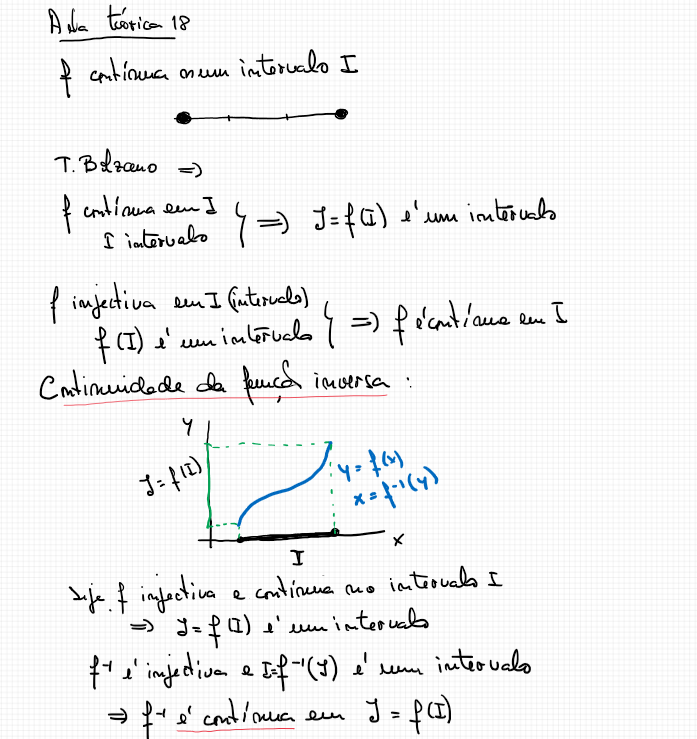 Aula teórica 18
f contínua num intervalo I
T. Bolzano ⇒
f contínua em I
I intervalo } ⇒ J = f(I) é um intervalo
f injectiva em I (intervalo)
f(I) é um intervalo } ⇒ f é contínua em I
Continuidade da função inversa :
y
J = f(I)
y = f(x)
x = f⁻¹(y)
x
I
Seja f injectiva e contínua no intervalo I
⇒ J = f(I) é um intervalo
f⁻¹ é injectiva e I = f⁻¹(J) é um intervalo
⇒ f⁻¹ é contínua em J = f(I)